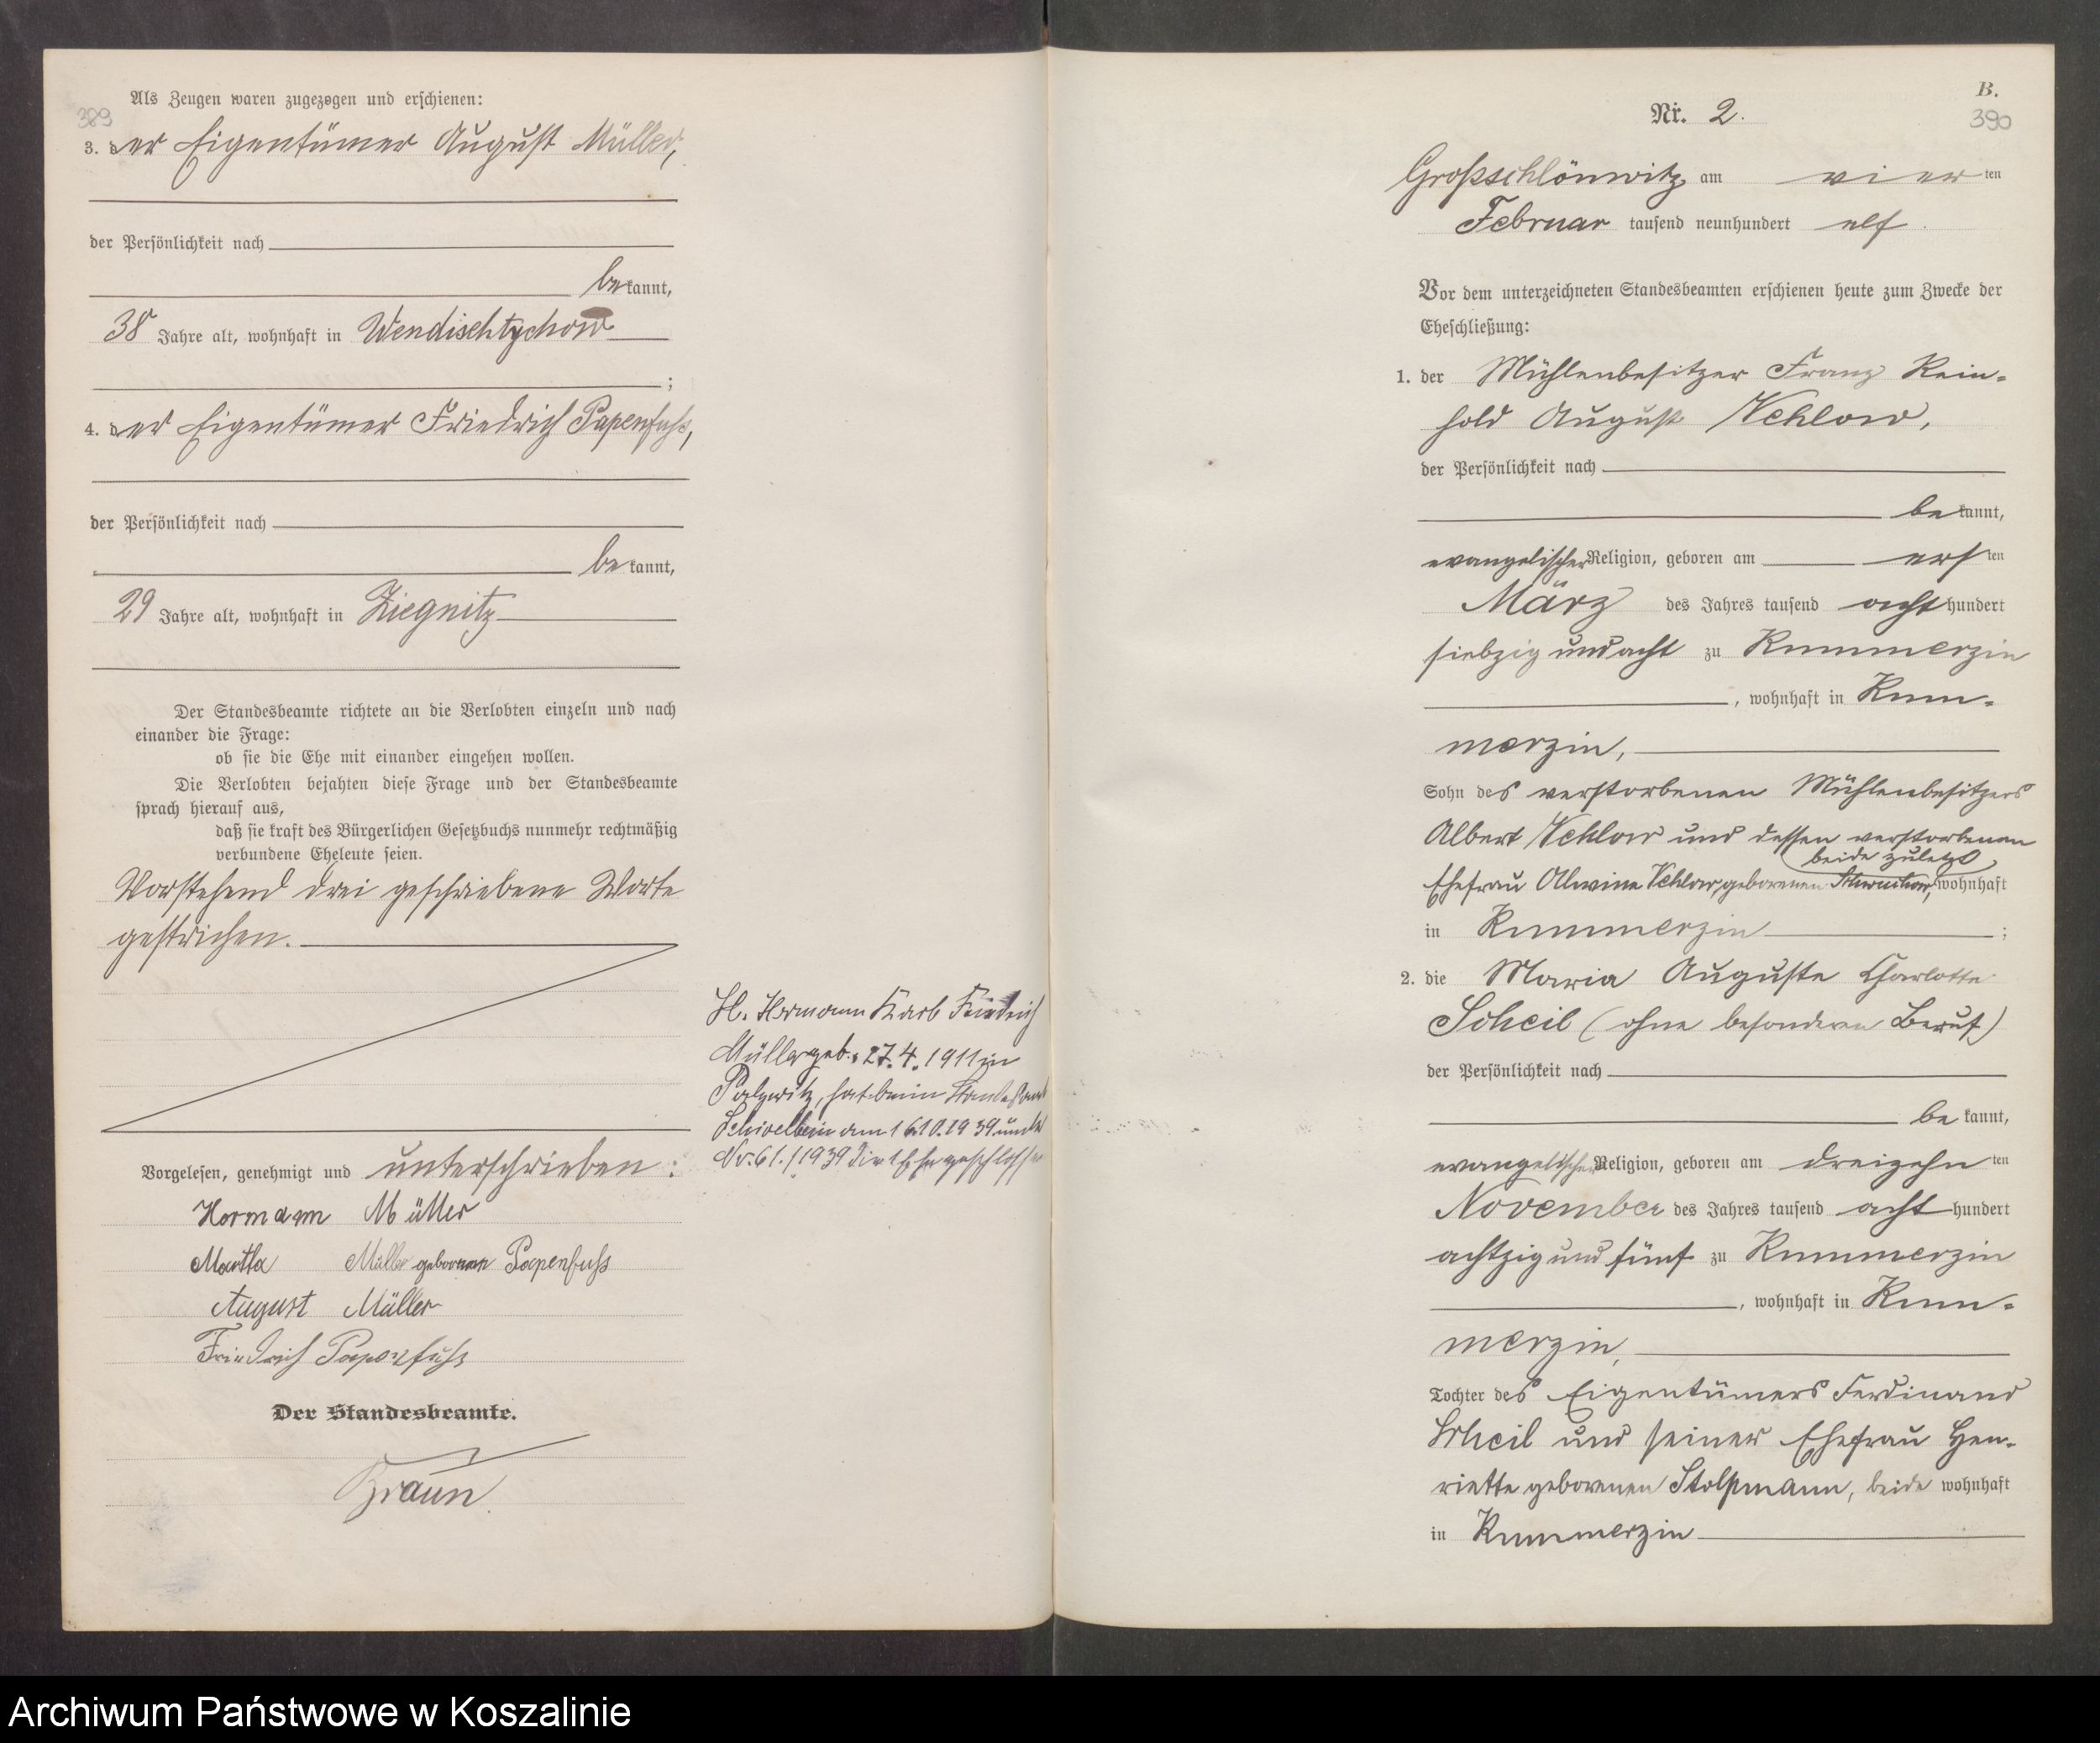 389
Als Zeugen waren zugezogen und erschienen:
3. der Eigentümer August Müller,
der Persönlichkeit nach
bekannt,
38 Jahre alt, wohnhaft in Wendischtychow
;
4. der Eigentümer Friedrich Papenfuß,
der Persönlichkeit nach
bekannt,
29 Jahre alt, wohnhaft in Ziegnitz
Der Standesbeamte richtete an die Verlobten einzeln und nach
einander die Frage:
ob sie die Ehe mit einander eingehen wollen.
Die Verlobten bejahten diese Frage und der Standesbeamte
sprach hierauf aus,
daß sie kraft des Bürgerlichen Gesetzbuchs nunmehr rechtmäßig
verbundene Eheleute seien.
Vorstehend drei geschriebene Worte
gestrichen.
Vorgelesen, genehmigt und unterschrieben:
Hermann Müller
Martha Müller geborene Papenfuß
August Müller
Friedrich Papenfuß
Der Standesbeamte.
Braun.
H. Hermann Karl Friedrich
Müller geb. 27.4.1911 in
Palzwitz, hat beim Standesamt
Schivelbein am 16.10.1939 unter
Nr. 61/1939 die 1. Ehe geschlossen
B.
390
Nr. 2.
Großschlönwitz am vierten
Februar tausend neunhundert elf.
Vor dem unterzeichneten Standesbeamten erschienen heute zum Zwecke der
Eheschließung:
1. der Mühlenbesitzer Franz Rein-
hold August Vehlow,
der Persönlichkeit nach
bekannt,
evangelischer Religion, geboren am ersten
März des Jahres tausend achthundert
siebzig und acht zu Kummerzin
, wohnhaft in Kum-
merzin,
Sohn des verstorbenen Mühlenbesitzers
Albert Vehlow und dessen verstorbenen
beide zuletzt
Ehefrau Alwine Vehlow, geborenen wohnhaft
in Kummerzin ;
2. die Maria Auguste Charlotte
Scheil (ohne besonderen Beruf)
der Persönlichkeit nach
bekannt,
evangelischer Religion, geboren am dreizehnten
November des Jahres tausend achthundert
achtzig und fünf zu Kummerzin
, wohnhaft in Kum-
merzin,
Tochter des Eigentümers Ferdinand
Scheil und seiner Ehefrau Hen-
riette geborenen Stolpmann, beide wohnhaft
in Kummerzin
Archiwum Państwowe w Koszalinie